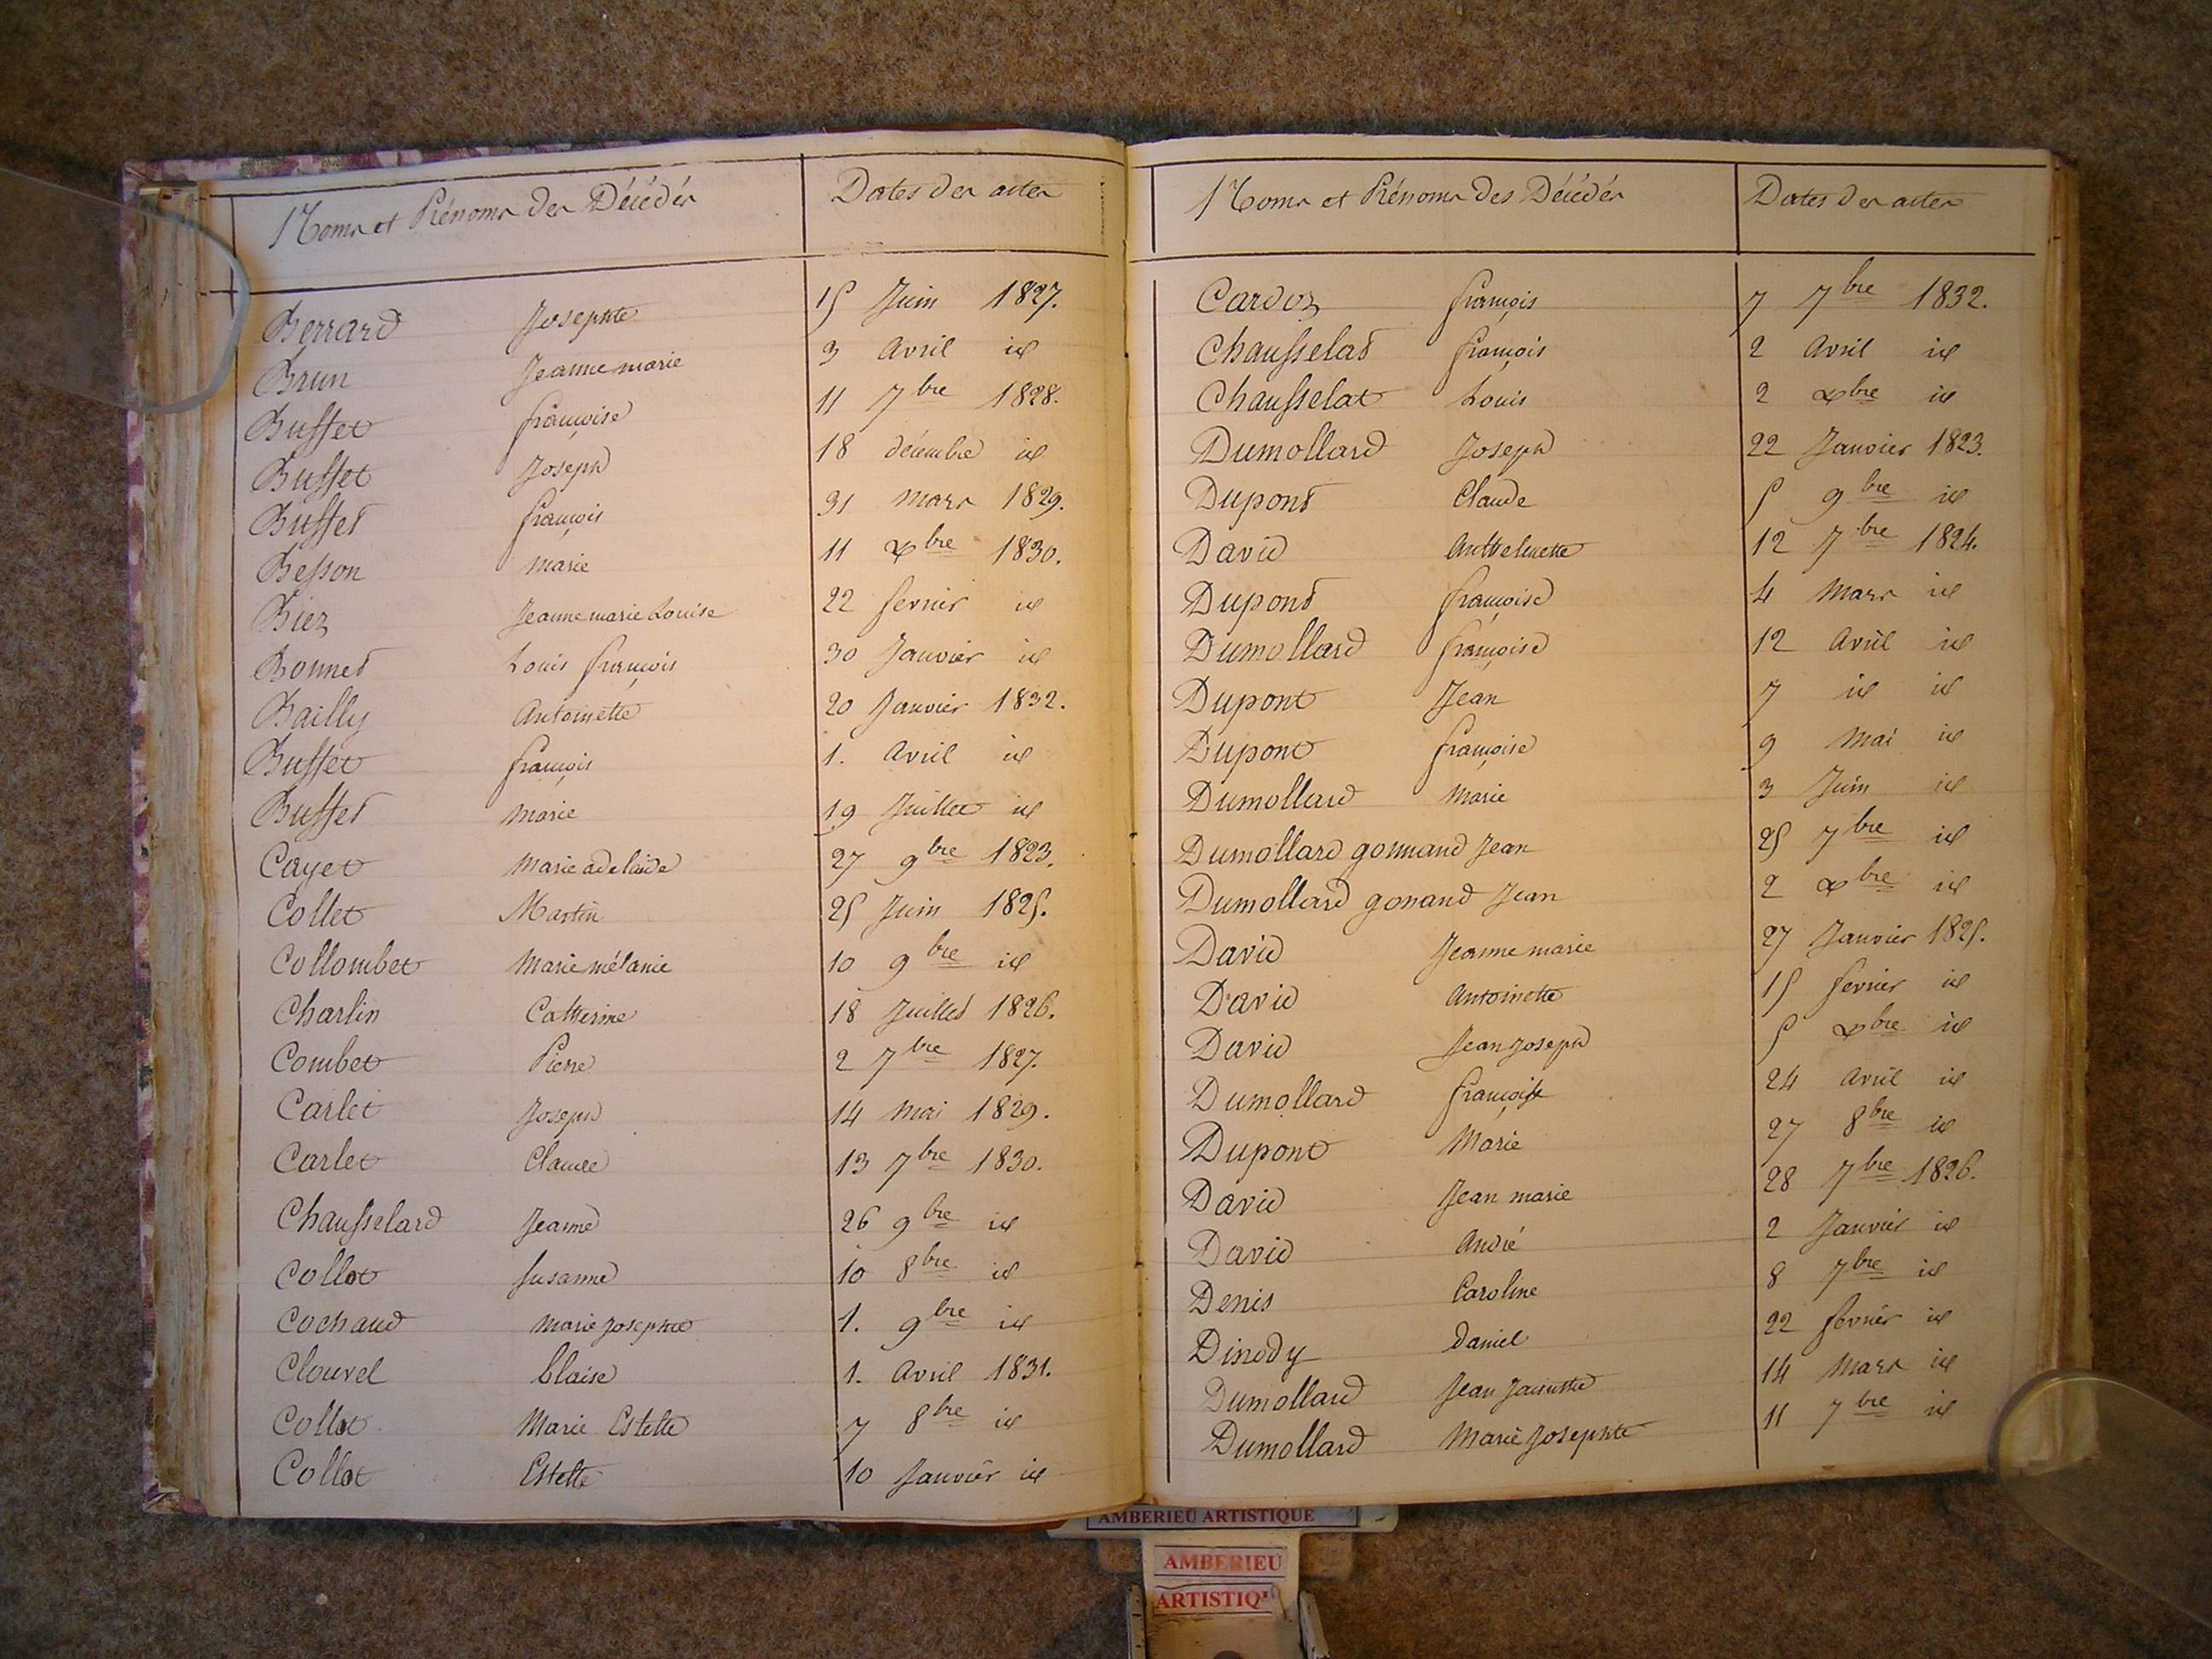 Noms et Prénoms des Décédés Dates des actes
Berrard Josephte 15 Juin 1827.
Brun Jeanne marie 3 Avril id
Buffet françoise 11 7bre 1828.
Buffet Joseph 18 décembre id
Buffet françois 31 mars 1829.
Besson marie 11 xbre 1830.
Biez Jeanne marie Louise 22 fevrier id
Bonnet Louis françois 30 Janvier id
Bailly Antoinette 20 Janvier 1832.
Buffet françois 1. Avril id
Buffet marie 19 Juillet id
Cayet Marie adelaide 27 9bre 1823.
Collet Martin 25 Juin 1825.
Collombet Marie mélanie 10 9bre id
Charlin Catherine 18 Juillet 1826.
Combet Pierre 2 7bre 1827.
Carlet Joseph 14 Mai 1829.
Carlet Claude 13 7bre 1830.
Chausselard Jeanne 26 9bre id
Collot Susanne 10 8bre id
Cochaud Marie Josephte 1. 9bre id
Clouvel blaise 1. Avril 1831.
Collot Marie Estelle 7 8bre id
Collot Estelle 10 Janvier id
Noms et Prénoms des Décédés Dates des actes
Cardoz françois 7 7bre 1832.
Chausselat françois 2 Avril id
Chausselat Louis 2 xbre id
Dumollard Joseph 22 Janvier 1823.
Dupont Claude 5 9bre id
David Anthelmette 12 7bre 1824.
Dupont françoise 4 Mars id
Dumollard françoise 12 Avril id
Dupont Jean 7 id id
Dupont françoise 9 Mai id
Dumollard Marie 3 Juin id
Dumollard gonnand Jean 25 7bre id
Dumollard gonand Jean 2 xbre id
David Jeanne marie 27 Janvier 1825.
David Antoinette 15 fevrier id
David Jean Joseph 5 xbre id
Dumollard 24 Avril id
Dupont Marie 27 8bre id
David Jean marie 28 7bre 1826.
David André 2 Janvier id
Denis Caroline 8 7bre id
Daniel 22 fevrier id
Dumollard Jean 14 Mars id
Dumollard Marie Josephte 11 7bre id
AMBERIEU ARTISTIQUE
AMBERIEU
ARTISTIQ